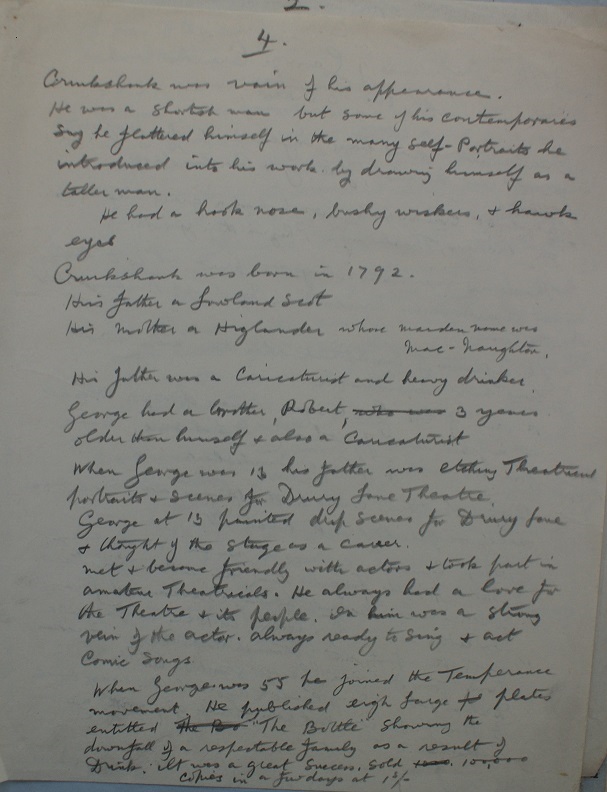 2.
4.
Cruikshank was vain of his appearance.
He was a shortish man but some of his contemporaries
say he flattered himself in the many self-Portraits he
introduced into his work by drawing himself as a
taller man.
He had a hook nose, bushy wiskers, & hawk
eyes
Cruikshank was born in 1792.
His father a Lowland Scot
His mother a Higlander whose maiden name was
Mac-Naughton.
His father was a Caricaturist and heavy drinker.
George had a brother, Robert, who was 3 years
older than himself & also a Caricaturist
When George was 13 his father was etching Theatrical
portraits & scenes for Drury Lane Theatre.
George at 13 painted drop scenes for Drury Lane
& thought of the stage as a career.
met & became friendly with actors & took part in
amateur Theatricals. He always had a love for
the Theatre & its people. In him was a strong
vein of the actor. always ready to sing & act
Comic Songs
When George was 55 he joined the Temperance
movement. He published eigh large plates
entitled The Bo "The Bottle" Showing the
downfall of a respectable family as a result of
Drink. It was a great success. Sold 100,000
copies in a few days at 1/-